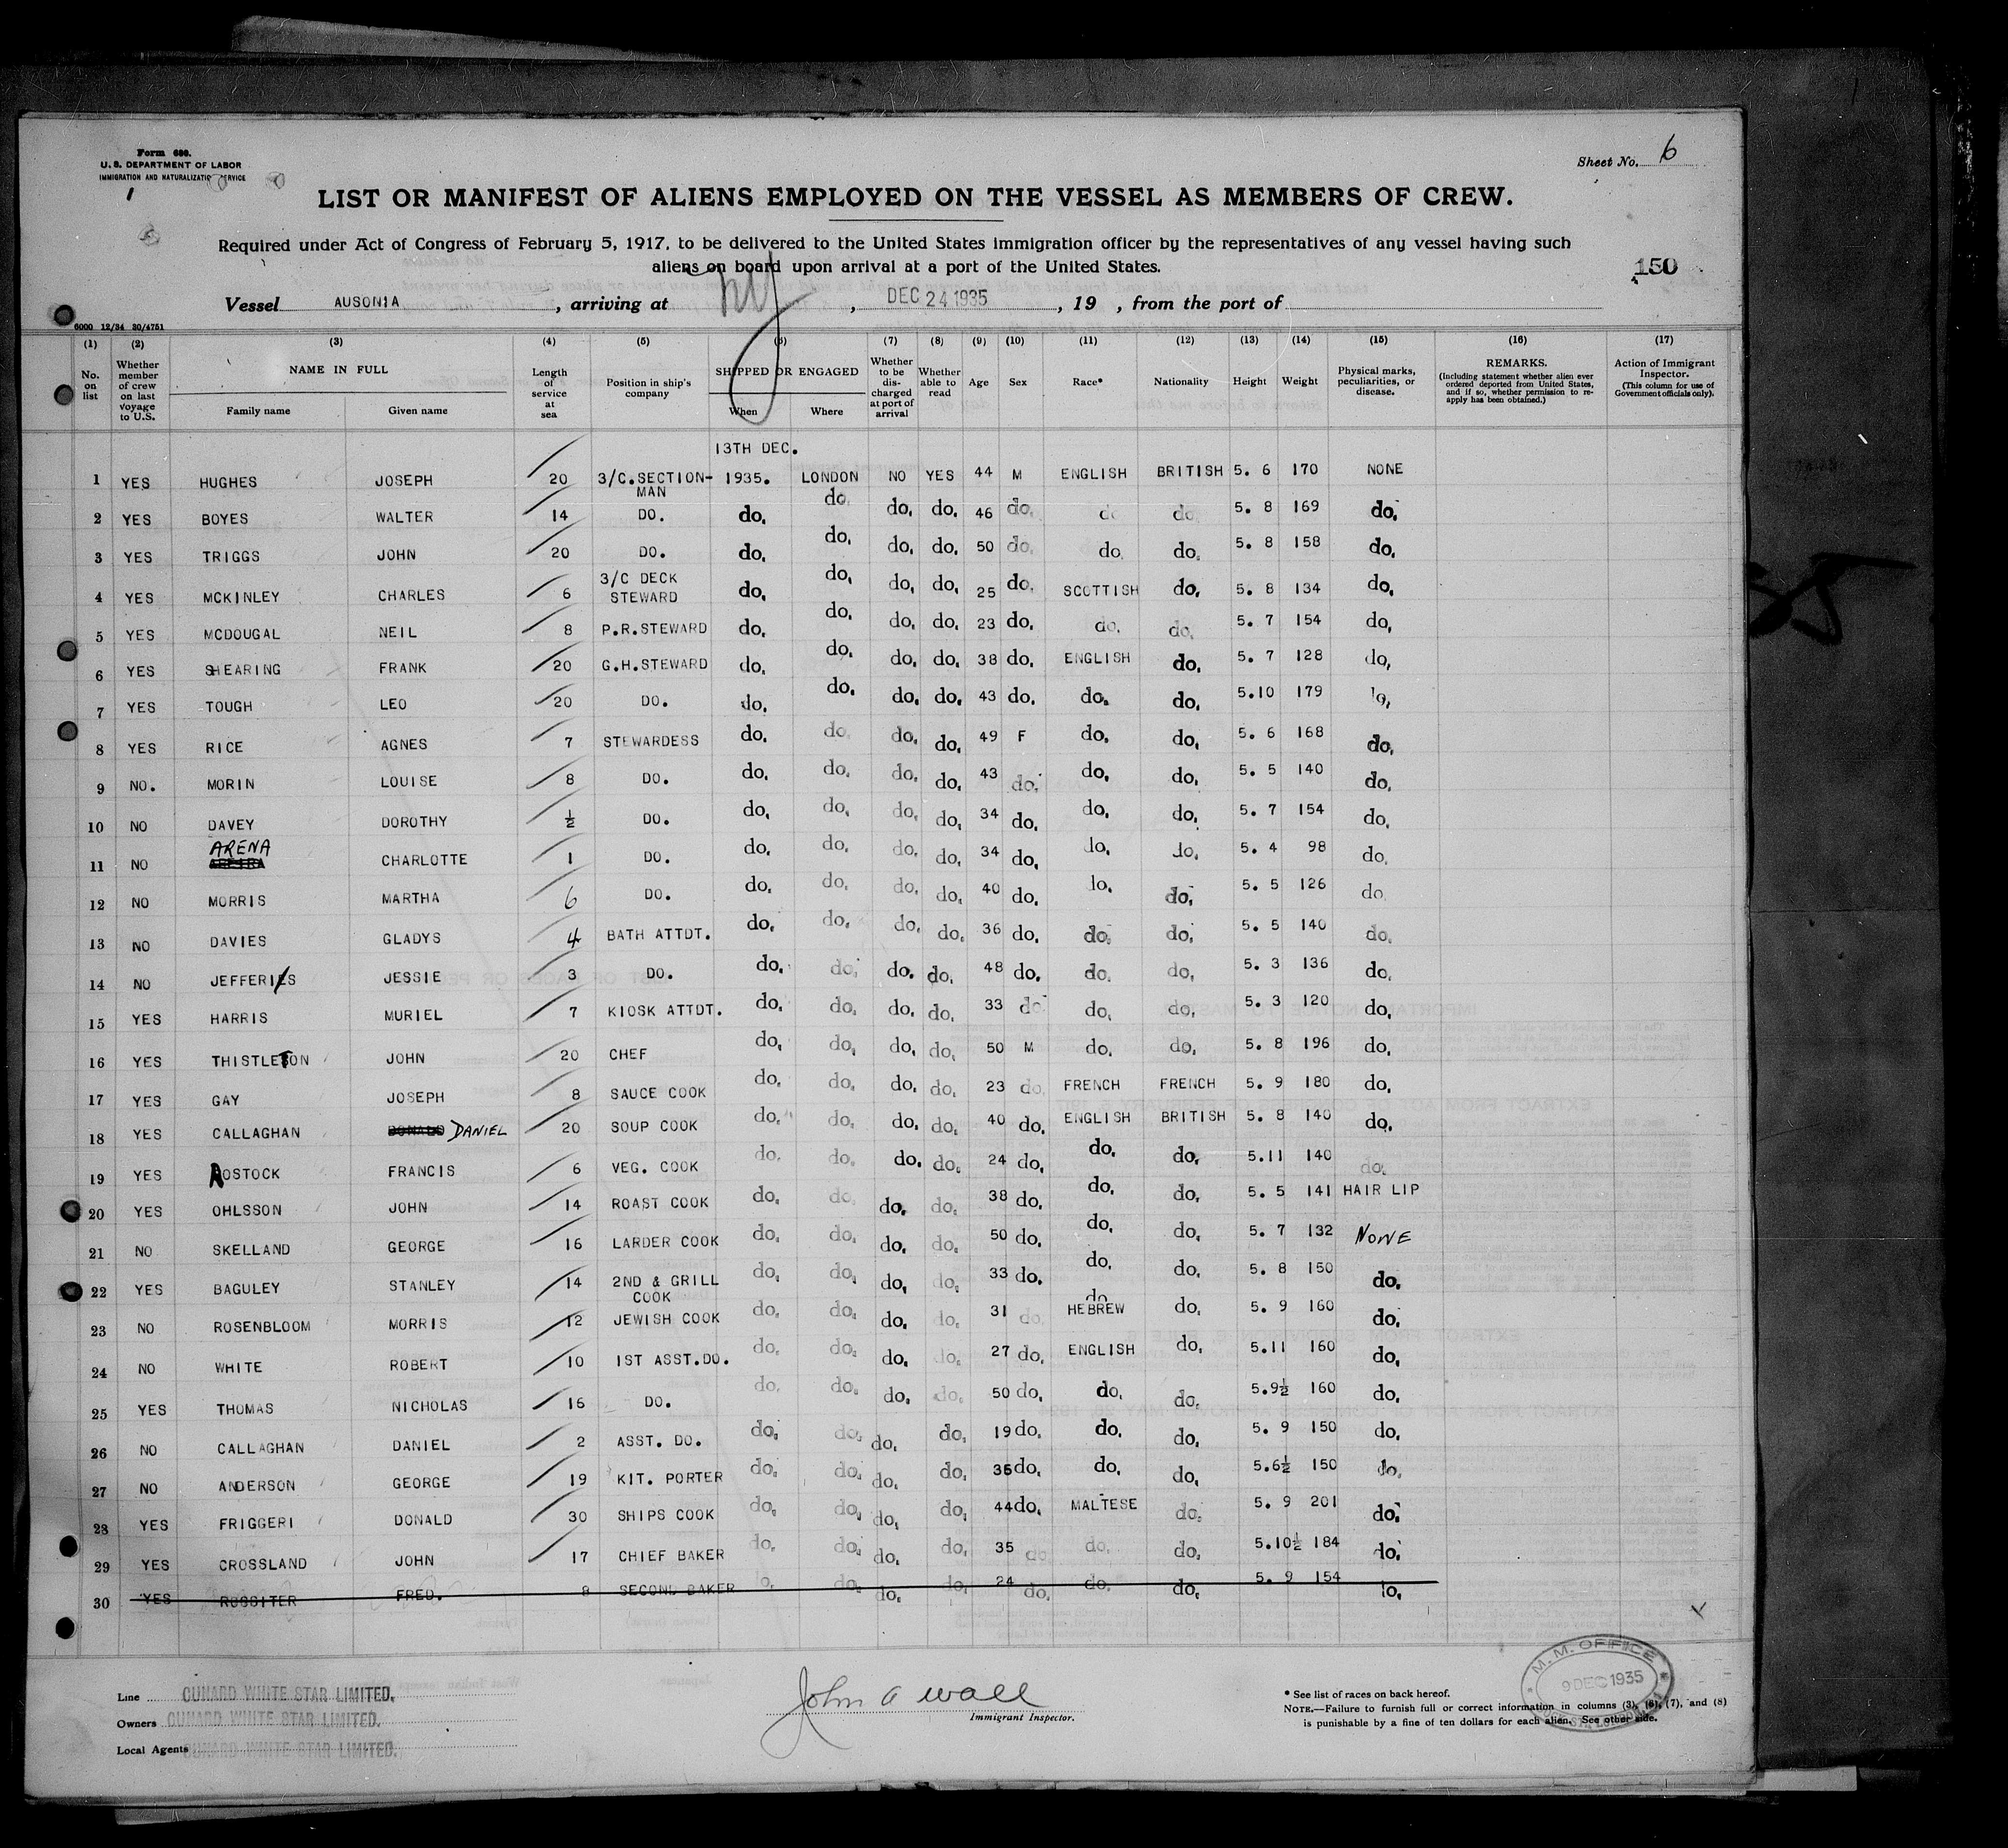 Form 680.
U. S. DEPARTMENT OF LABOR
IMMIGRATION AND NATURALIZATION SERVICE
Sheet No. 6
LIST OR MANIFEST OF ALIENS EMPLOYED ON THE VESSEL AS MEMBERS OF CREW.
Required under Act of Congress of February 5, 1917, to be delivered to the United States immigration officer by the representatives of any vessel having such
aliens on board upon arrival at a port of the United States.
150
Vessel AUSONIA, arriving at NY, DEC 24 1935, 19 , from the port of
6000 12/34 30/4751
(1) (2) (3) (4) (5) (6) (7) (8) (9) (10) (11) (12) (13) (14) (15) (16) (17)
No. on list Whether member of crew on last voyage to U.S. NAME IN FULL Family name Given name Length of service at sea Position in ship's company SHIPPED OR ENGAGED When Where Whether to be discharged at port of arrival Whether able to read Age Sex Race* Nationality Height Weight Physical marks, peculiarities, or disease. REMARKS. (Including statement whether alien ever ordered deported from United States, and if so, whether permission to reapply has been obtained.) Action of Immigrant Inspector. (This column for use of Government officials only).
13TH DEC.
1 YES HUGHES JOSEPH 20 3/C.SECTION-MAN 1935. LONDON NO YES 44 M ENGLISH BRITISH 5. 6 170 NONE
2 YES BOYES WALTER 14 DO. do. do. do. do. 46 do. do. do. 5. 8 169 do.
3 YES TRIGGS JOHN 20 DO. do. do. do. do. 50 do. do. do. 5. 8 158 do.
4 YES MCKINLEY CHARLES 6 3/C DECK STEWARD do. do. do. do. 25 do. SCOTTISH do. 5. 8 134 do.
5 YES MCDOUGAL NEIL 8 P.R.STEWARD do. do. do. do. 23 do. do. do. 5. 7 154 do.
6 YES SHEARING FRANK 20 G.H.STEWARD do. do. do. do. 38 do. ENGLISH do. 5. 7 128 do.
7 YES TOUGH LEO 20 DO. do. do. do. do. 43 do. do. do. 5.10 179 do.
8 YES RICE AGNES 7 STEWARDESS do. do. do. do. 49 F do. do. 5. 6 168 do.
9 NO. MORIN LOUISE 8 DO. do. do. do. do. 43 do. do. do. 5. 5 140 do.
10 NO DAVEY DOROTHY ½ DO. do. do. do. do. 34 do. do. do. 5. 7 154 do.
11 NO ARENA CHARLOTTE 1 DO. do. do. do. do. 34 do. do. do. 5. 4 98 do.
12 NO MORRIS MARTHA 6 DO. do. do. do. do. 40 do. do. do. 5. 5 126 do.
13 NO DAVIES GLADYS 4 BATH ATTDT. do. do. do. do. 36 do. do. do. 5. 5 140 do.
14 NO JEFFERIES JESSIE 3 DO. do. do. do. do. 48 do. do. do. 5. 3 136 do.
15 YES HARRIS MURIEL 7 KIOSK ATTDT. do. do. do. do. 33 do. do. do. 5. 3 120 do.
16 YES THISTLETON JOHN 20 CHEF do. do. do. do. 50 M do. do. 5. 8 196 do.
17 YES GAY JOSEPH 8 SAUCE COOK do. do. do. do. 23 do. FRENCH FRENCH 5. 9 180 do.
18 YES CALLAGHAN DONALD DANIEL 20 SOUP COOK do. do. do. do. 40 do. ENGLISH BRITISH 5. 8 140 do.
19 YES ROSTOCK FRANCIS 6 VEG. COOK do. do. do. do. 24 do. do. do. 5.11 140 do.
20 YES OHLSSON JOHN 14 ROAST COOK do. do. do. do. 38 do. do. do. 5. 5 141 HAIR LIP
21 NO SKELLAND GEORGE 16 LARDER COOK do. do. do. do. 50 do. do. do. 5. 7 132 NONE
22 YES BAGULEY STANLEY 14 2ND & GRILL COOK do. do. do. do. 33 do. do. do. 5. 8 150 do.
23 NO ROSENBLOOM MORRIS 12 JEWISH COOK do. do. do. do. 31 do. do. HEBREW do. 5. 9 160 do.
24 NO WHITE ROBERT 10 1ST ASST.DO. do. do. do. do. 27 do. ENGLISH do. 5.11 160 do.
25 YES THOMAS NICHOLAS 16 DO. do. do. do. do. 50 do. do. do. 5.9½ 160 do.
26 NO CALLAGHAN DANIEL 2 ASST. DO. do. do. do. do. 19 do. do. do. 5. 9 150 do.
27 NO ANDERSON GEORGE 19 KIT. PORTER do. do. do. do. 35 do. do. do. 5.6½ 150 do.
28 YES FRIGGERI DONALD 30 SHIPS COOK do. do. do. do. 44 do. MALTESE do. 5. 9 201 do.
29 YES CROSSLAND JOHN 17 CHIEF BAKER do. do. do. do. 35 do. do. do. 5.10½ 184 do.
30 YES ROSSITER FRED. 8 SECOND BAKER do. do. do. do. 24 do. do. do. 5. 9 154 do.
Line CUNARD WHITE STAR LIMITED.
Owners CUNARD WHITE STAR LIMITED.
Local Agents CUNARD WHITE STAR LIMITED.
John A Wall
Immigrant Inspector.
* See list of races on back hereof.
NOTE.—Failure to furnish full or correct information in columns (3), (6), (7), and (8)
is punishable by a fine of ten dollars for each alien. See other side.
M. M. OFFICE
9 DEC 1935